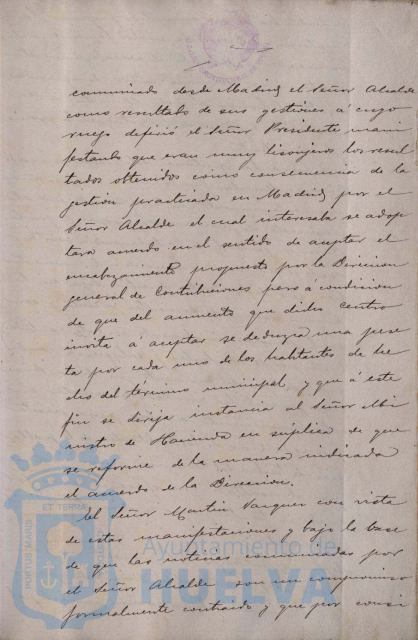 comunicado desde Madrid el Señor Alcalde
como resultado de sus gestiones á cuyo
ruego defirió el Señor Presidente mani
festando que eran muy lisonjeros los resul
tados obtenidos como consecuencia de la
gestión practicada en Madrid por el
Señor Alcalde el cual interesaba se adop
tara acuerdo en el sentido de aceptar el
encabezamiento propuesto por la Direccion
general de Contribuciones pero a condicion
de que del aumento que dicho Centro
invita á aceptar se deduzca una pese
ta por cada uno de los habitantes de he
cho del término municipal, y que á este
fin se dirija instancia al Señor Mi
nistro de Hacienda en suplica de que
se reforme de la manera indicada
el acuerdo de la Direccion.
El Señor Martin Vazquez con vista
de estas manifestaciones y bajo la base
de que las noticias comunicadas por
el Señor Alcalde son un compromiso
formalmente contraido y que por consi
PORTUS MARIS ET TERRAE
Ayuntamiento de
HUELVA